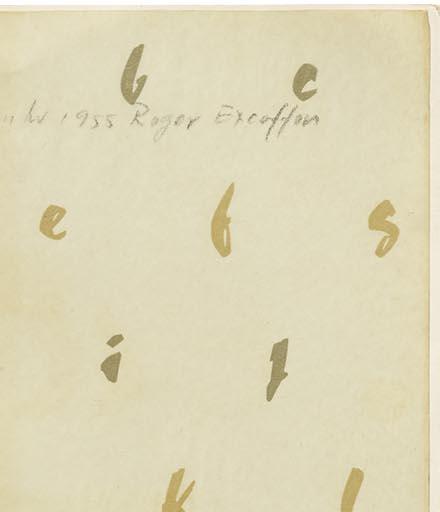 b c
1955 Roger Excoffon
e f g
i j
k l